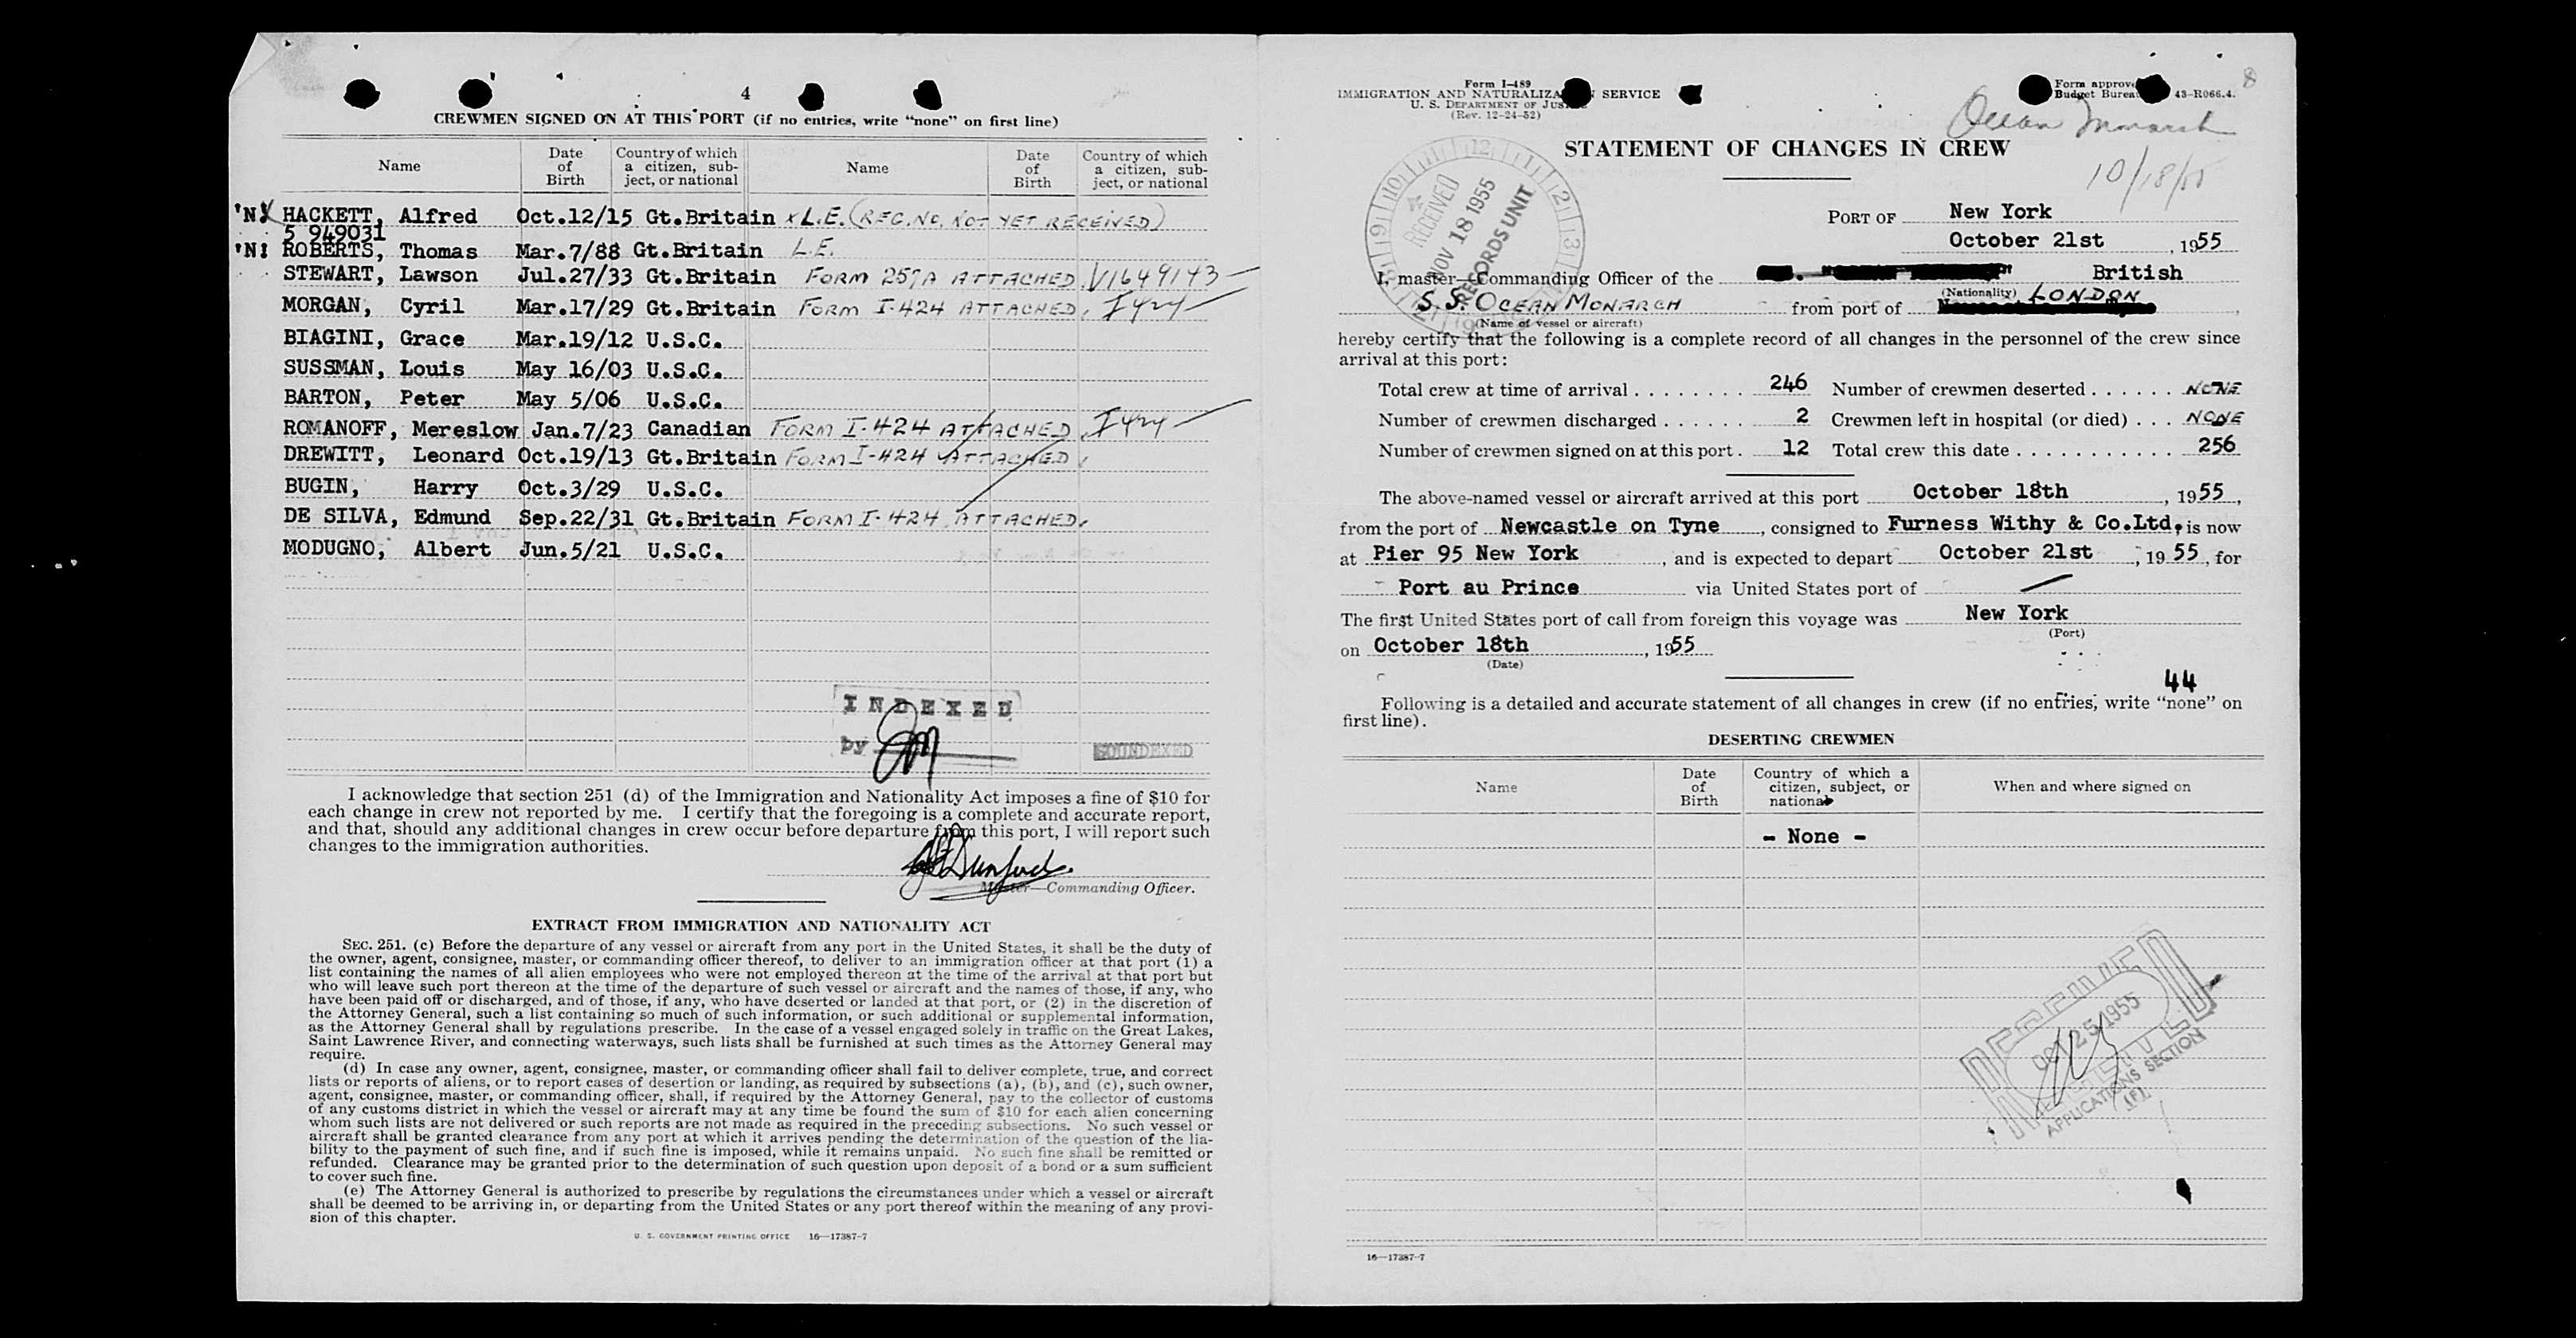 4
CREWMEN SIGNED ON AT THIS PORT (if no entries, write "none" on first line)
Name Date of Birth Country of which a citizen, subject, or national Name Date of Birth Country of which a citizen, subject, or national
'N! HACKETT, Alfred Oct.12/15 Gt.Britain x L.E. (REC. NO. NOT YET RECEIVED)
5 949031
'N! ROBERTS, Thomas Mar.7/88 Gt.Britain L.E.
STEWART, Lawson Jul.27/33 Gt.Britain FORM 257A ATTACHED. V1649143
MORGAN, Cyril Mar.17/29 Gt.Britain FORM I-424 ATTACHED. I424
BIAGINI, Grace Mar.19/12 U.S.C.
SUSSMAN, Louis May 16/03 U.S.C.
BARTON, Peter May 5/06 U.S.C.
ROMANOFF, Mereslow Jan.7/23 Canadian FORM I-424 ATTACHED. I424
DREWITT, Leonard Oct.19/13 Gt.Britain FORM I-424 ATTACHED.
BUGIN, Harry Oct.3/29 U.S.C.
DE SILVA, Edmund Sep.22/31 Gt.Britain FORM I-424 ATTACHED.
MODUGNO, Albert Jun.5/21 U.S.C.
INDEXED
by
SOUNDEXED
I acknowledge that section 251 (d) of the Immigration and Nationality Act imposes a fine of $10 for
each change in crew not reported by me. I certify that the foregoing is a complete and accurate report,
and that, should any additional changes in crew occur before departure from this port, I will report such
changes to the immigration authorities.
Dunford
Master—Commanding Officer.
EXTRACT FROM IMMIGRATION AND NATIONALITY ACT
SEC. 251. (c) Before the departure of any vessel or aircraft from any port in the United States, it shall be the duty of
the owner, agent, consignee, master, or commanding officer thereof, to deliver to an immigration officer at that port (1) a
list containing the names of all alien employees who were not employed thereon at the time of the arrival at that port but
who will leave such port thereon at the time of the departure of such vessel or aircraft and the names of those, if any, who
have been paid off or discharged, and of those, if any, who have deserted or landed at that port, or (2) in the discretion of
the Attorney General, such a list containing so much of such information, or such additional or supplemental information,
as the Attorney General shall by regulations prescribe. In the case of a vessel engaged solely in traffic on the Great Lakes,
Saint Lawrence River, and connecting waterways, such lists shall be furnished at such times as the Attorney General may
require.
(d) In case any owner, agent, consignee, master, or commanding officer shall fail to deliver complete, true, and correct
lists or reports of aliens, or to report cases of desertion or landing, as required by subsections (a), (b), and (c), such owner,
agent, consignee, master, or commanding officer, shall, if required by the Attorney General, pay to the collector of customs
of any customs district in which the vessel or aircraft may at any time be found the sum of $10 for each alien concerning
whom such lists are not delivered or such reports are not made as required in the preceding subsections. No such vessel or
aircraft shall be granted clearance from any port at which it arrives pending the determination of the question of the lia-
bility to the payment of such fine, and if such fine is imposed, while it remains unpaid. No such fine shall be remitted or
refunded. Clearance may be granted prior to the determination of such question upon deposit of a bond or a sum sufficient
to cover such fine.
(e) The Attorney General is authorized to prescribe by regulations the circumstances under which a vessel or aircraft
shall be deemed to be arriving in, or departing from the United States or any port thereof within the meaning of any provi-
sion of this chapter.
U. S. GOVERNMENT PRINTING OFFICE 16—17387-7
Form I-489
IMMIGRATION AND NATURALIZA SERVICE
U. S. DEPARTMENT OF JUS
(Rev. 12-24-52)
8
Form approve
Budget Burea 43-R066.4.
Ocean Monarch
10/18/55
STATEMENT OF CHANGES IN CREW
RECEIVED
NOV 18 1955
RECORDS UNIT
PORT OF New York
October 21st, 1955
I, master—Commanding Officer of the British
(Nationality) LONDON
S.S. OCEAN MONARCH from port of
(Name of vessel or aircraft)
hereby certify that the following is a complete record of all changes in the personnel of the crew since
arrival at this port:
Total crew at time of arrival 246 Number of crewmen deserted NONE
Number of crewmen discharged 2 Crewmen left in hospital (or died) NONE
Number of crewmen signed on at this port 12 Total crew this date 256
The above-named vessel or aircraft arrived at this port October 18th, 1955,
from the port of Newcastle on Tyne, consigned to Furness Withy & Co.Ltd, is now
at Pier 95 New York, and is expected to depart October 21st, 1955, for
Port au Prince via United States port of —
The first United States port of call from foreign this voyage was New York
(Port)
on October 18th, 1955
(Date)
44
Following is a detailed and accurate statement of all changes in crew (if no entries, write "none" on
first line).
DESERTING CREWMEN
Name Date of Birth Country of which a citizen, subject, or national When and where signed on
- None -
OCT 25 1955
APPLICATIONS SECTION
(F)
16—17387-7